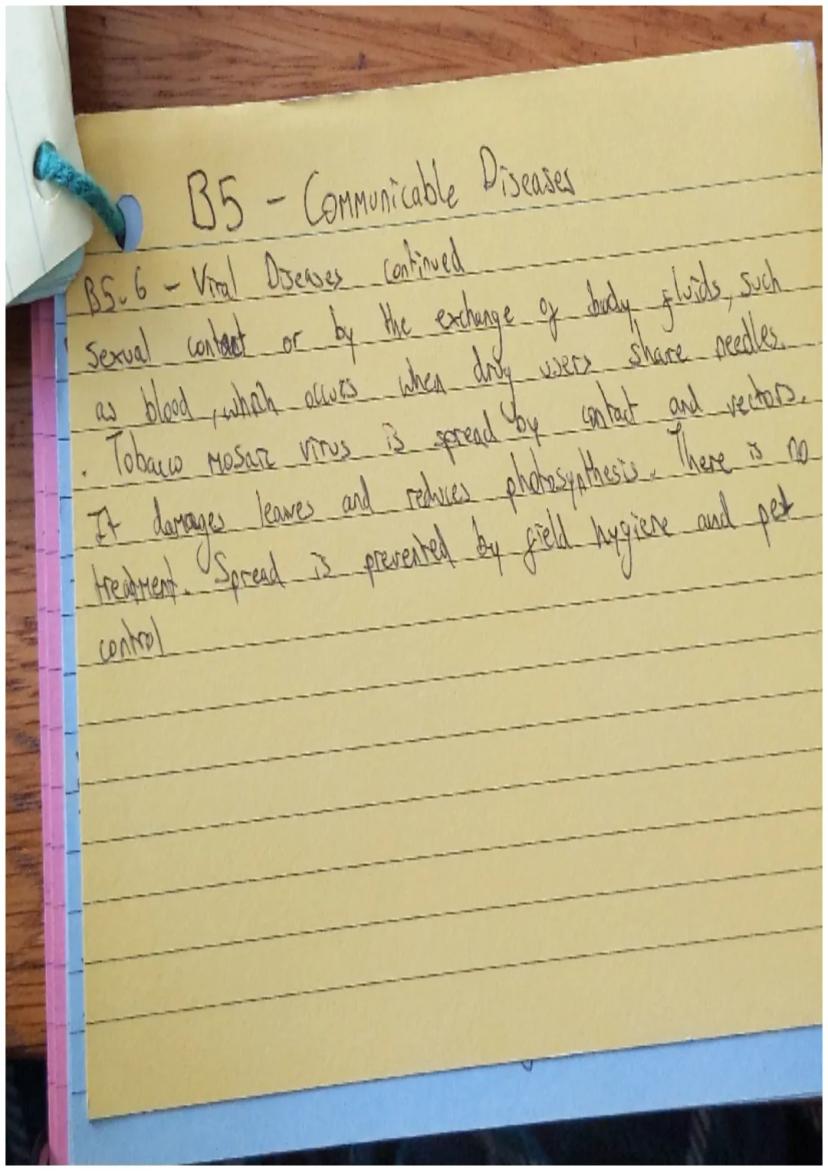 B5 - Communicable Diseases
B5.6 - Viral Diseases continued
sexual contact or by the exchange of body fluids, such
as blood, which occurs when drug users share needles.
. Tobacco mosaic virus is spread by contact and vectors.
It damages leaves and reduces photosynthesis. There is no
treatment. Spread is prevented by field hygiene and pet
control